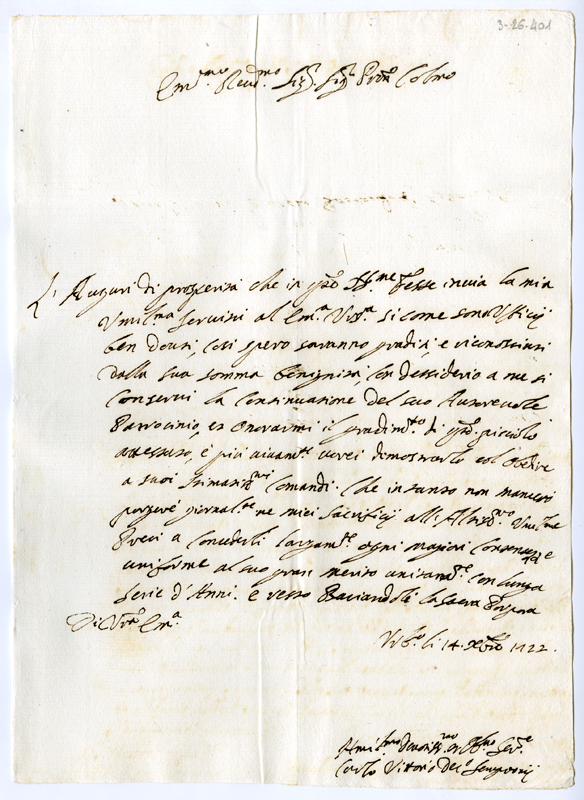 3-26-401
Em.mo Reud.mo Sig.r Sig.r Pron Colmo
L' Auguri di prosperità che in q.te SS.me feste invia la mia
Umil.ma servitù al Em.a V.ra si come sono Ufficij
ben douti, così spero saranno graditi, e riconosciuti
dalla sua somma benignità, con dessiderio a me si
conservi la continuatione del suo Autorevole
Patrocinio, et Onorarmi il gradim.to di q.to piccolo
attestato, e più vivam.te vorei dimostrarlo col obedire
a suoi stimatiss.mi comandi. Che in tanto non mancarò
porgere giornal.te ne miei Sacrificij all' Altiss.mo Umil.me
Preci a concederli largam.te ogni magior consolat.ne
uniforme al suo gran merito unitam.te con lunga
serie d' Anni. e resto Baciandoli la sacra Porpora
Di V.ra Em.a
Urb.o li 14 Xbre 1722.
Umil.mo Devotiss.mo et Obl.mo Ser.e
Carlo Vittorio de' Sempronij